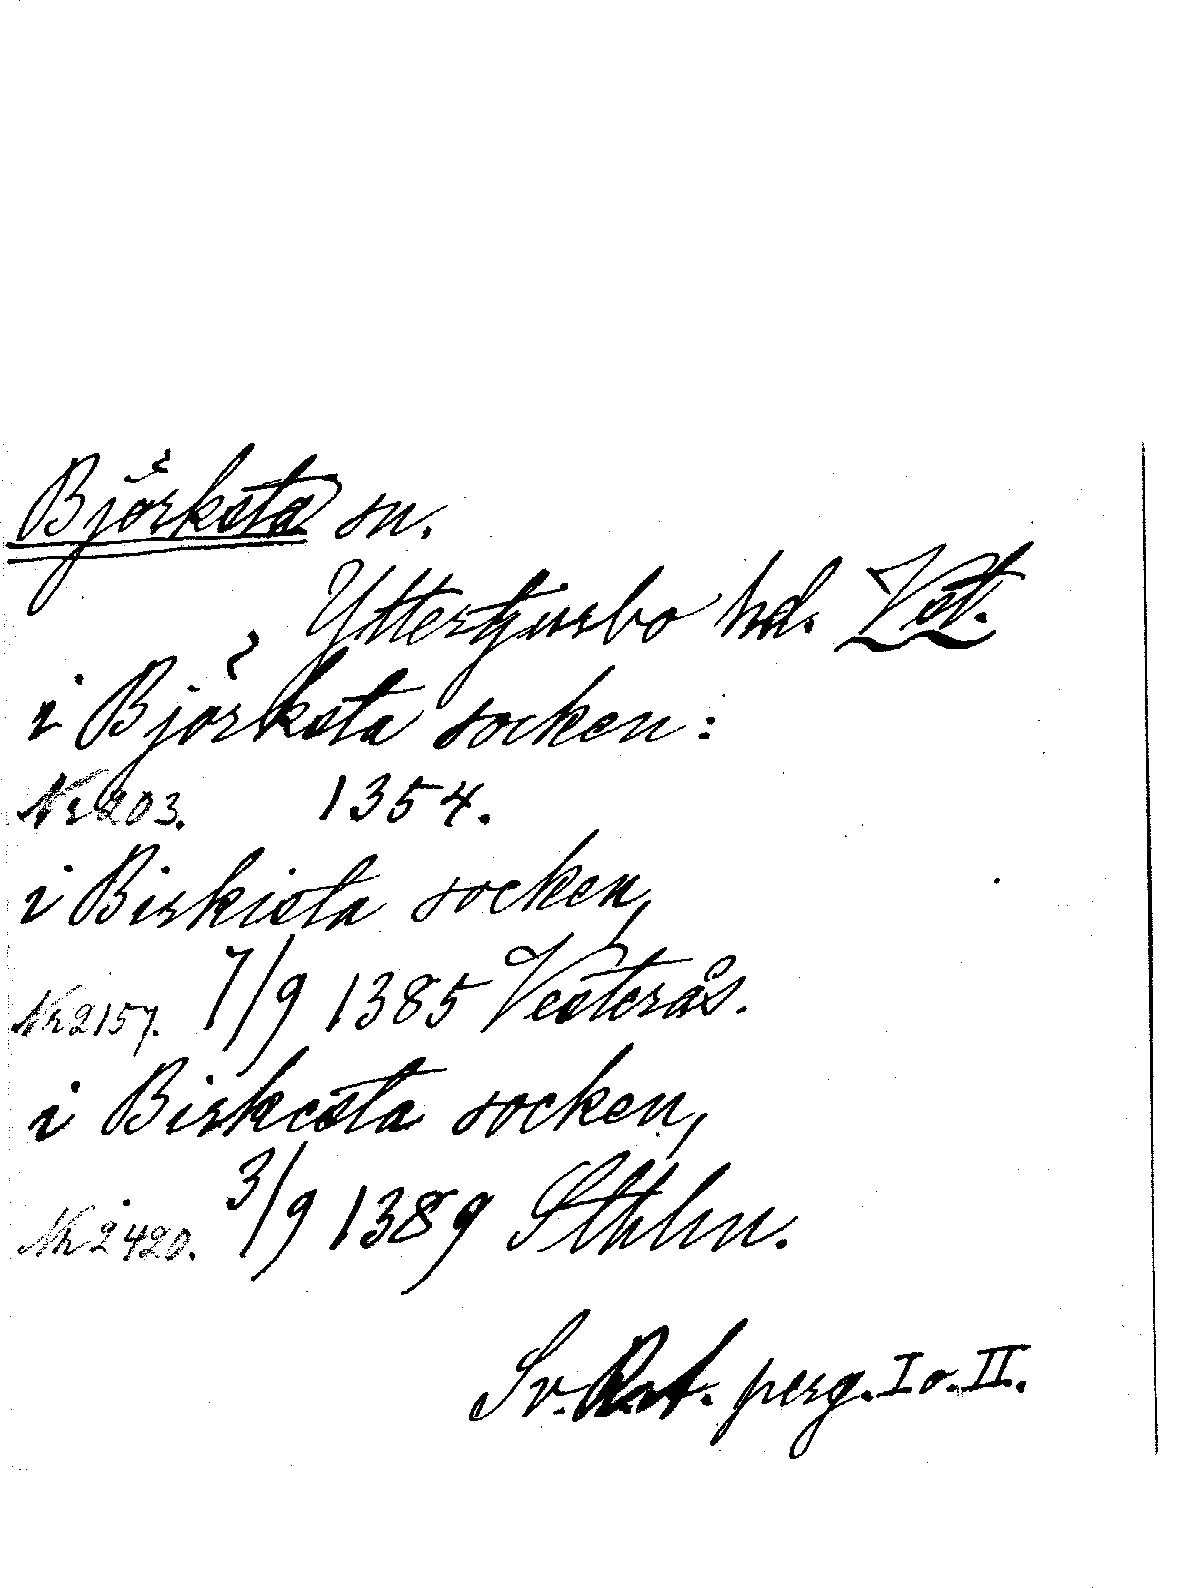 Björksta sn.
Yttertjurbo hd. Vstl.
i Björksta socken:
Nr 203. 1354.
i Birkista socken,
Nr 2157. 7/9 1385 Vesterås.
i Birkesta socken,
Nr 2420. 3/9 1389 Sthlm.
Sv. Rnt. perg. I o. II.